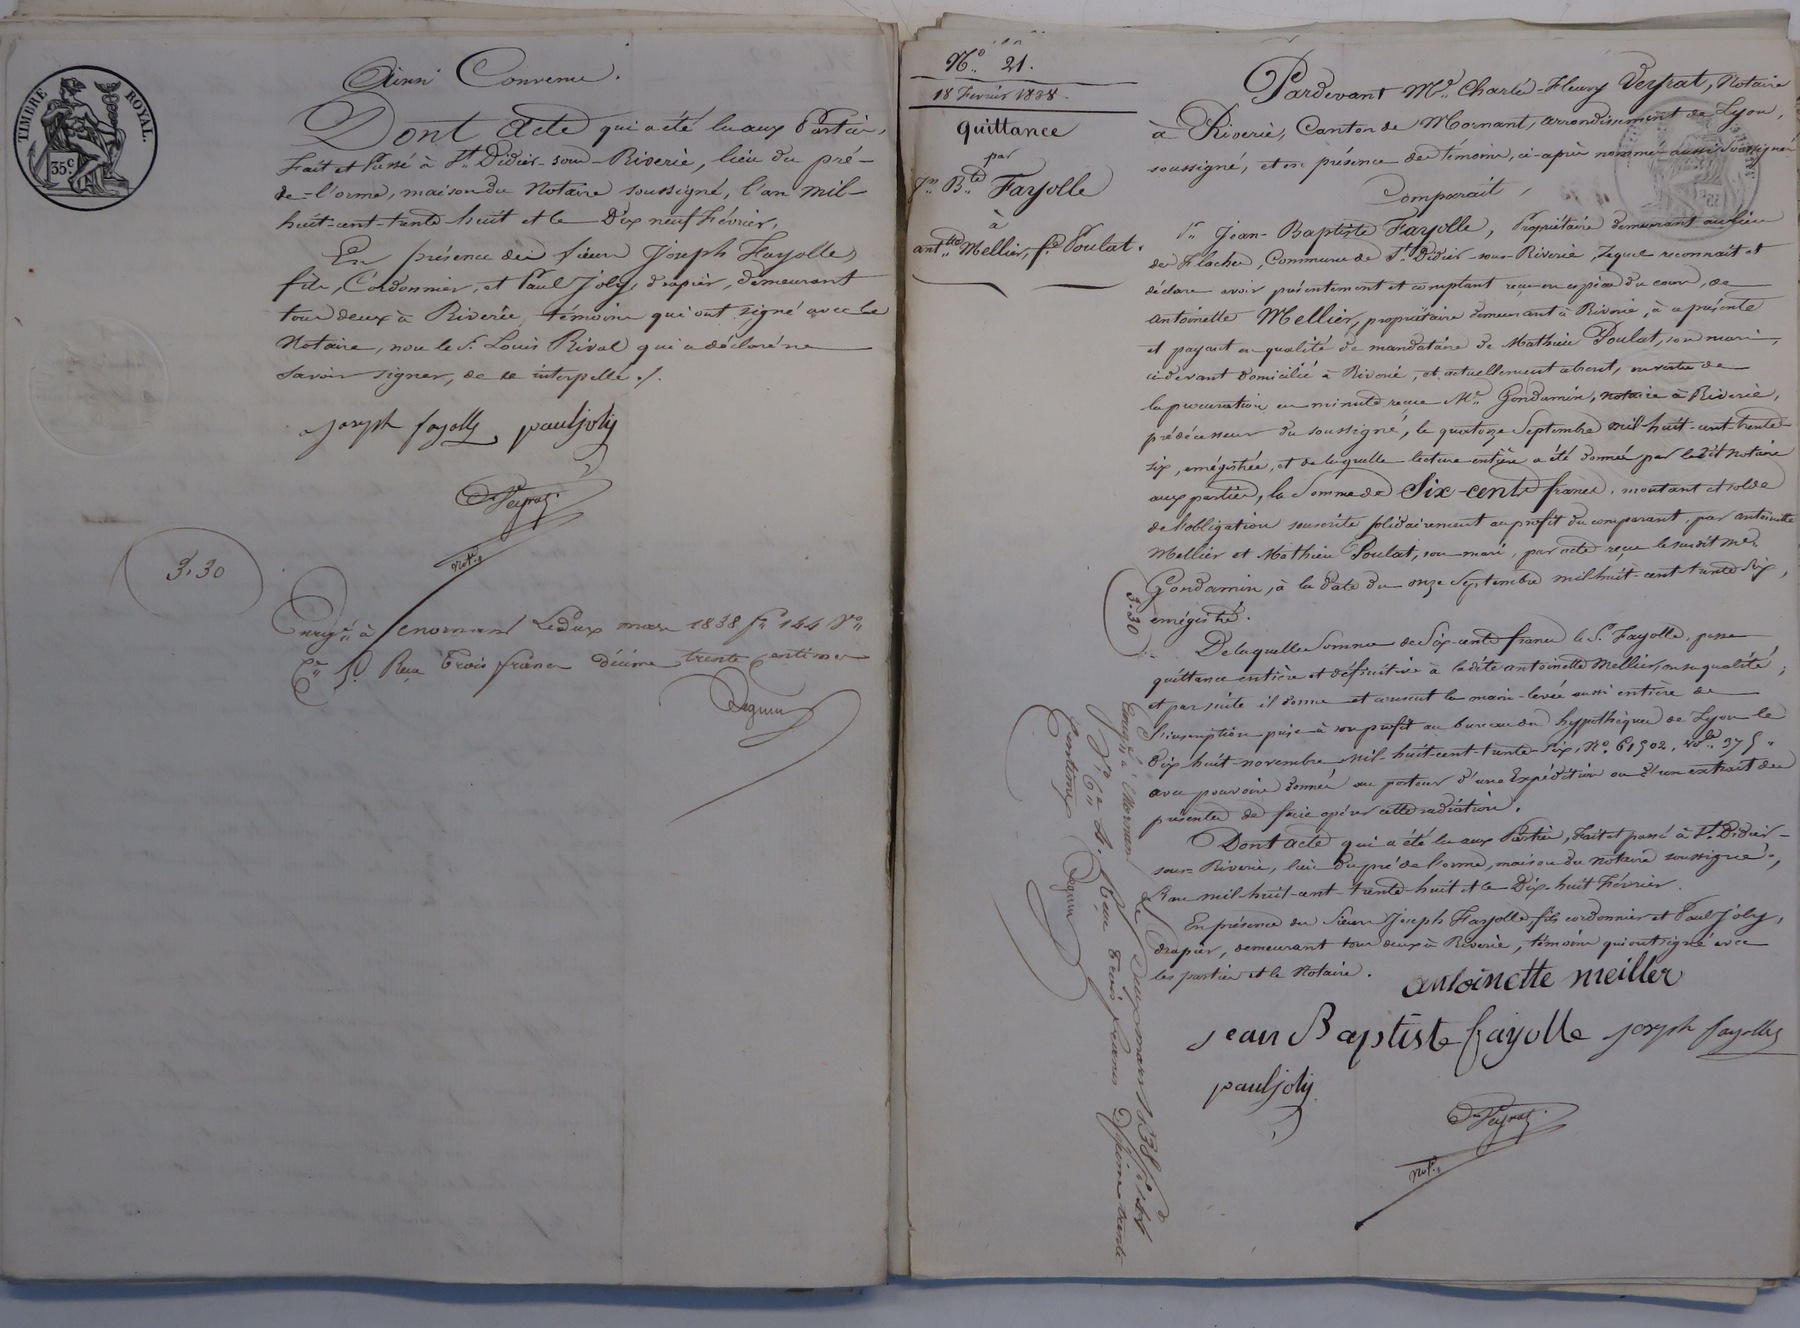 TIMBRE ROYAL.
35c
Ainsi Convenu.
Dont Acte qui a été lu aux Parties,
Fait et Passé à St. Didier-sous-Riverie, lieu du pré-
de-l'orme, maison du Notaire soussigné, l'an mil-
huit-cent-trente huit et le Dix neuf Février,
En présence des sieurs Joseph Fayolle
fils, Cordonnier, et Paul Joly, drapier, demeurant
tous deux à Riverie, témoins qui ont signé avec le
Notaire, non le Sr. Louis Rival qui a déclaré ne
savoir signer, de ce interpellé ./.
joseph fayolle paul joly
Veyrat
Not.re
3.30
Enregé à Mornant Le deux mars 1838 f° 144 V°
Ce 5. Reçu trois francs décime trente Centimes
N° 21.
18 Février 1838.
quittance
par
Jn. Bte Fayolle
à
antte Mellier, fe Poulat.
Pardevant Me Charles-Fleury Veyrat, Notaire
à Riverie, Canton de Mornant, arrondissement de Lyon,
soussigné, et en présence des témoins, ci-après nommés aussi soussignés
Comparait,
Sr. Jean-Baptiste Fayolle, Propriétaire demeurant au lieu
de Flaches, Commune de St. Didier-sous-Riverie, Lequel reconnait et
déclare avoir présentement et comptant reçu en espèces du cours, de
Antoinette Mellier, propriétaire demeurant à Riverie, à ce présente
et payant en qualité de mandataire de Mathieu Poulat, son mari,
ci-devant domicilié à Riverie, et actuellement absent, en vertu de
la procuration en minute reçue Me Gondamin, notaire à Riverie,
prédécesseur du soussigné, le quatorze Septembre mil-huit-cent-trente-
six, enregistrée, et de laquelle lecture entière a été donnée par ledit notaire
aux parties, la Somme de Six-cents francs, montant et solde
de l'obligation souscrite solidairement au profit du comparant, par antoinette
Mellier et Mathieu Poulat, son mari, par acte reçu le susdit Me.
Gondamin, à la date du onze Septembre mil huit-cent-trente six,
enregistré.
De laquelle Somme de Six-cents francs le Sr. Fayolle, passe
quittance entière et définitive à ladite antoinette Mellier, en sa qualité;
et par suite il donne et consent la main-levée aussi entière de
l'inscription prise à son profit au bureau des hypothèques de Lyon le
dix-huit-novembre mil-huit-cent-trente-six, N°. 61502, vol. 375.
avec pouvoir donné au porteur d'une Expédition ou d'un extrait des
présentes de faire opérer cette radiation.
Dont acte qui a été lu aux Parties, Fait et passé à St. Didier-
sous-Riverie, lieu du pré de l'orme, maison du notaire soussigné,
L'an mil-huit-cent-trente-huit et le Dix-huit Février.
En présence des Sieurs Joseph Fayolle fils cordonnier et Paul Joly,
drapier, demeurant tous deux à Riverie, témoins qui ont signé avec
les parties et le Notaire.
antoinette meiller
jean Baptiste fayolle joseph fayolle
paul joly
Veyrat
Not.re
3.30
Enregé à Mornant Le deux mars 1838 f° 144
V° Ce 4. Reçu trois francs décime trente
Centimes